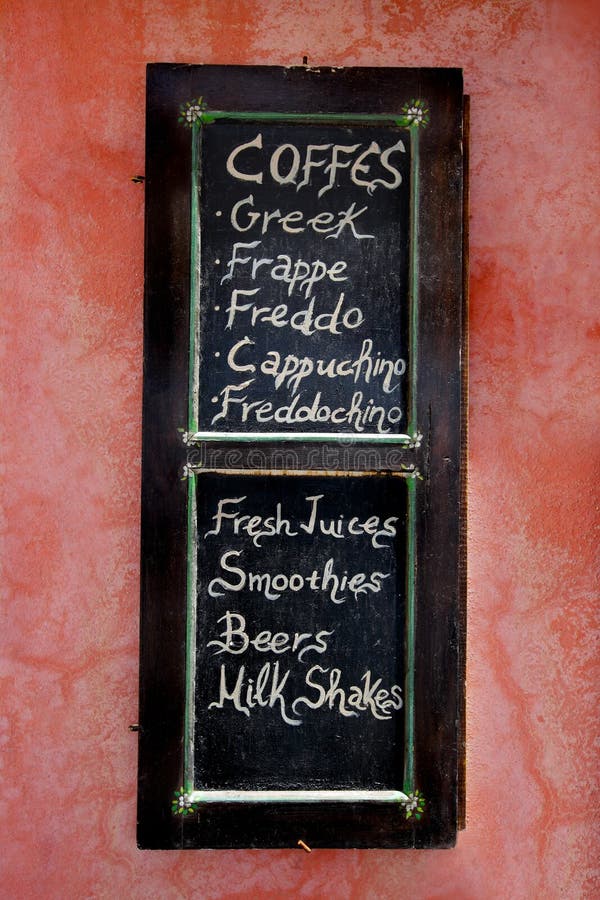 COFFES
· Greek
· Frappe
· Freddo
· Cappuchino
· Freddochino
dreamstime
Fresh Juices
Smoothies
Beers
Milk Shakes